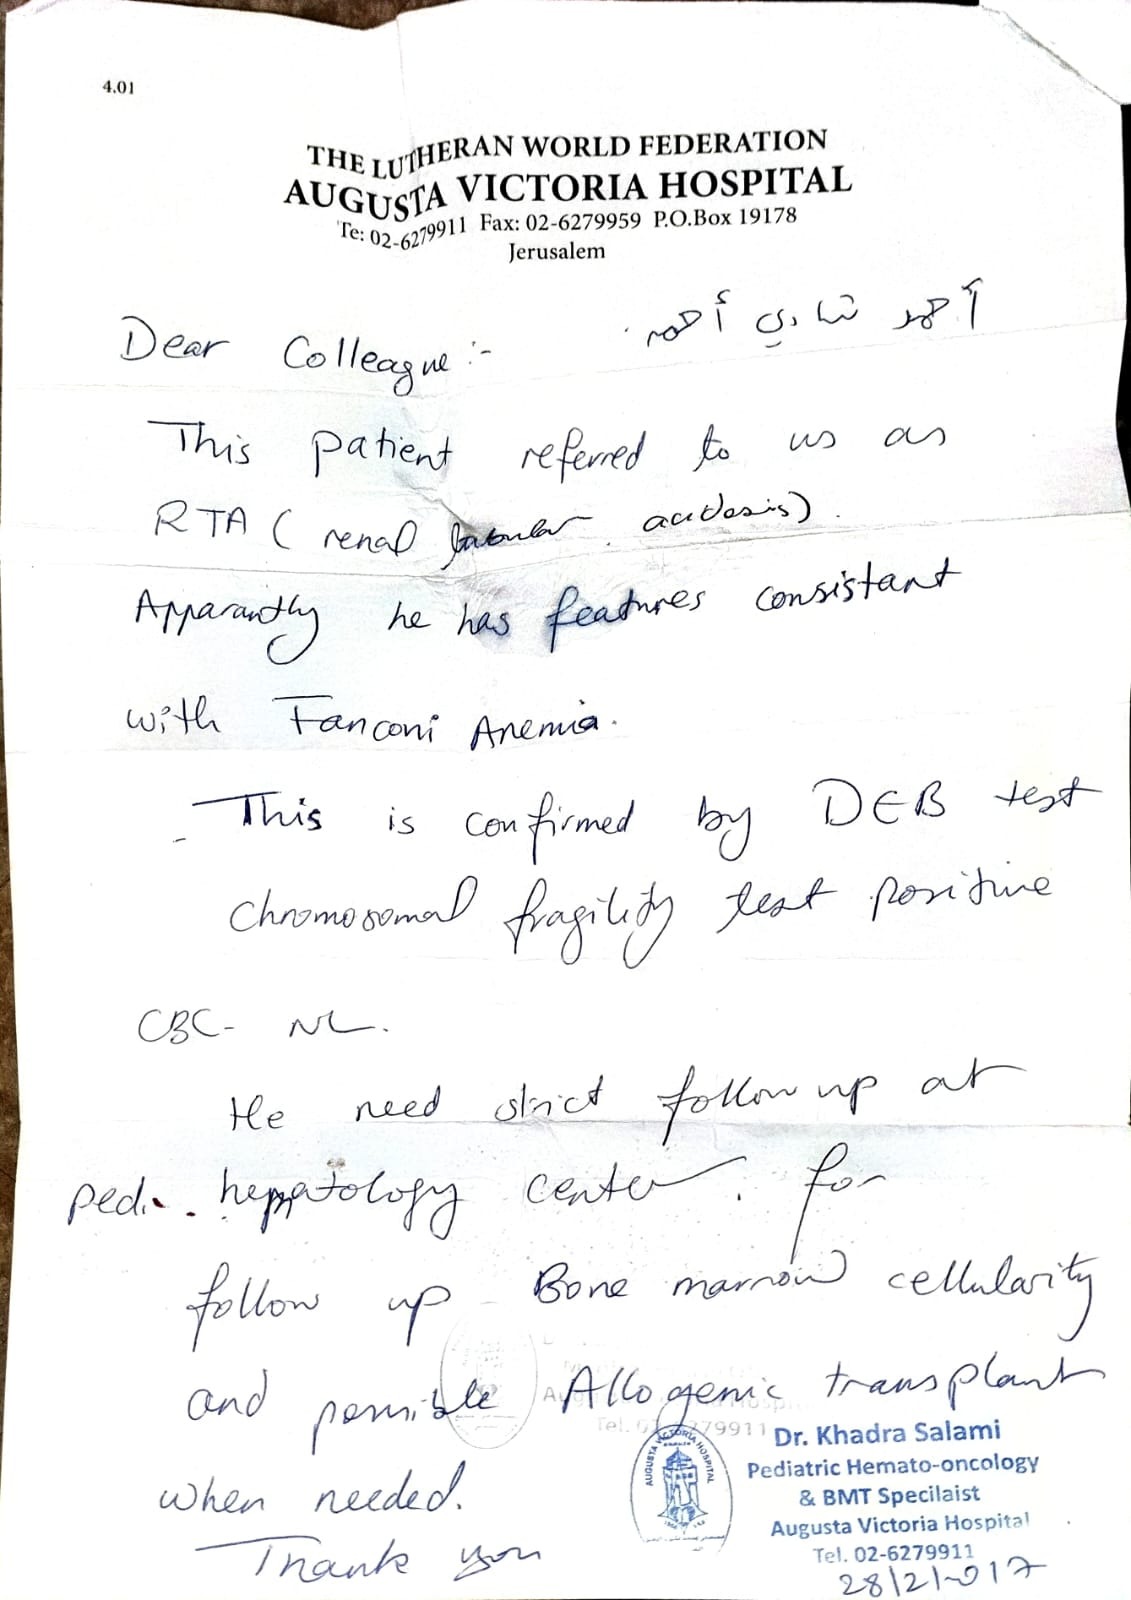 4.01
THE LUTHERAN WORLD FEDERATION
AUGUSTA VICTORIA HOSPITAL
Te: 02-6279911 Fax: 02-6279959 P.O.Box 19178
Jerusalem
أحمد شادي أحمد
Dear Colleague :-
This patient referred to us as
RTA ( renal tubular acidosis) .
Apparantly he has features consistant
with Fanconi Anemia.
- This is confirmed by DEB test
chromosomal fragility test positive
CBC- NL.
He need strict follow up at
pedi. hematology center . for
follow up Bone marrow cellularity
and possible Allogenic transplant
when needed.
Thank you
Dr. Khadra Salami
Pediatric Hemato-oncology
& BMT Specilaist
Augusta Victoria Hospital
Tel. 02-6279911
28/2/2017
AUGUSTA VICTORIA HOSPITAL